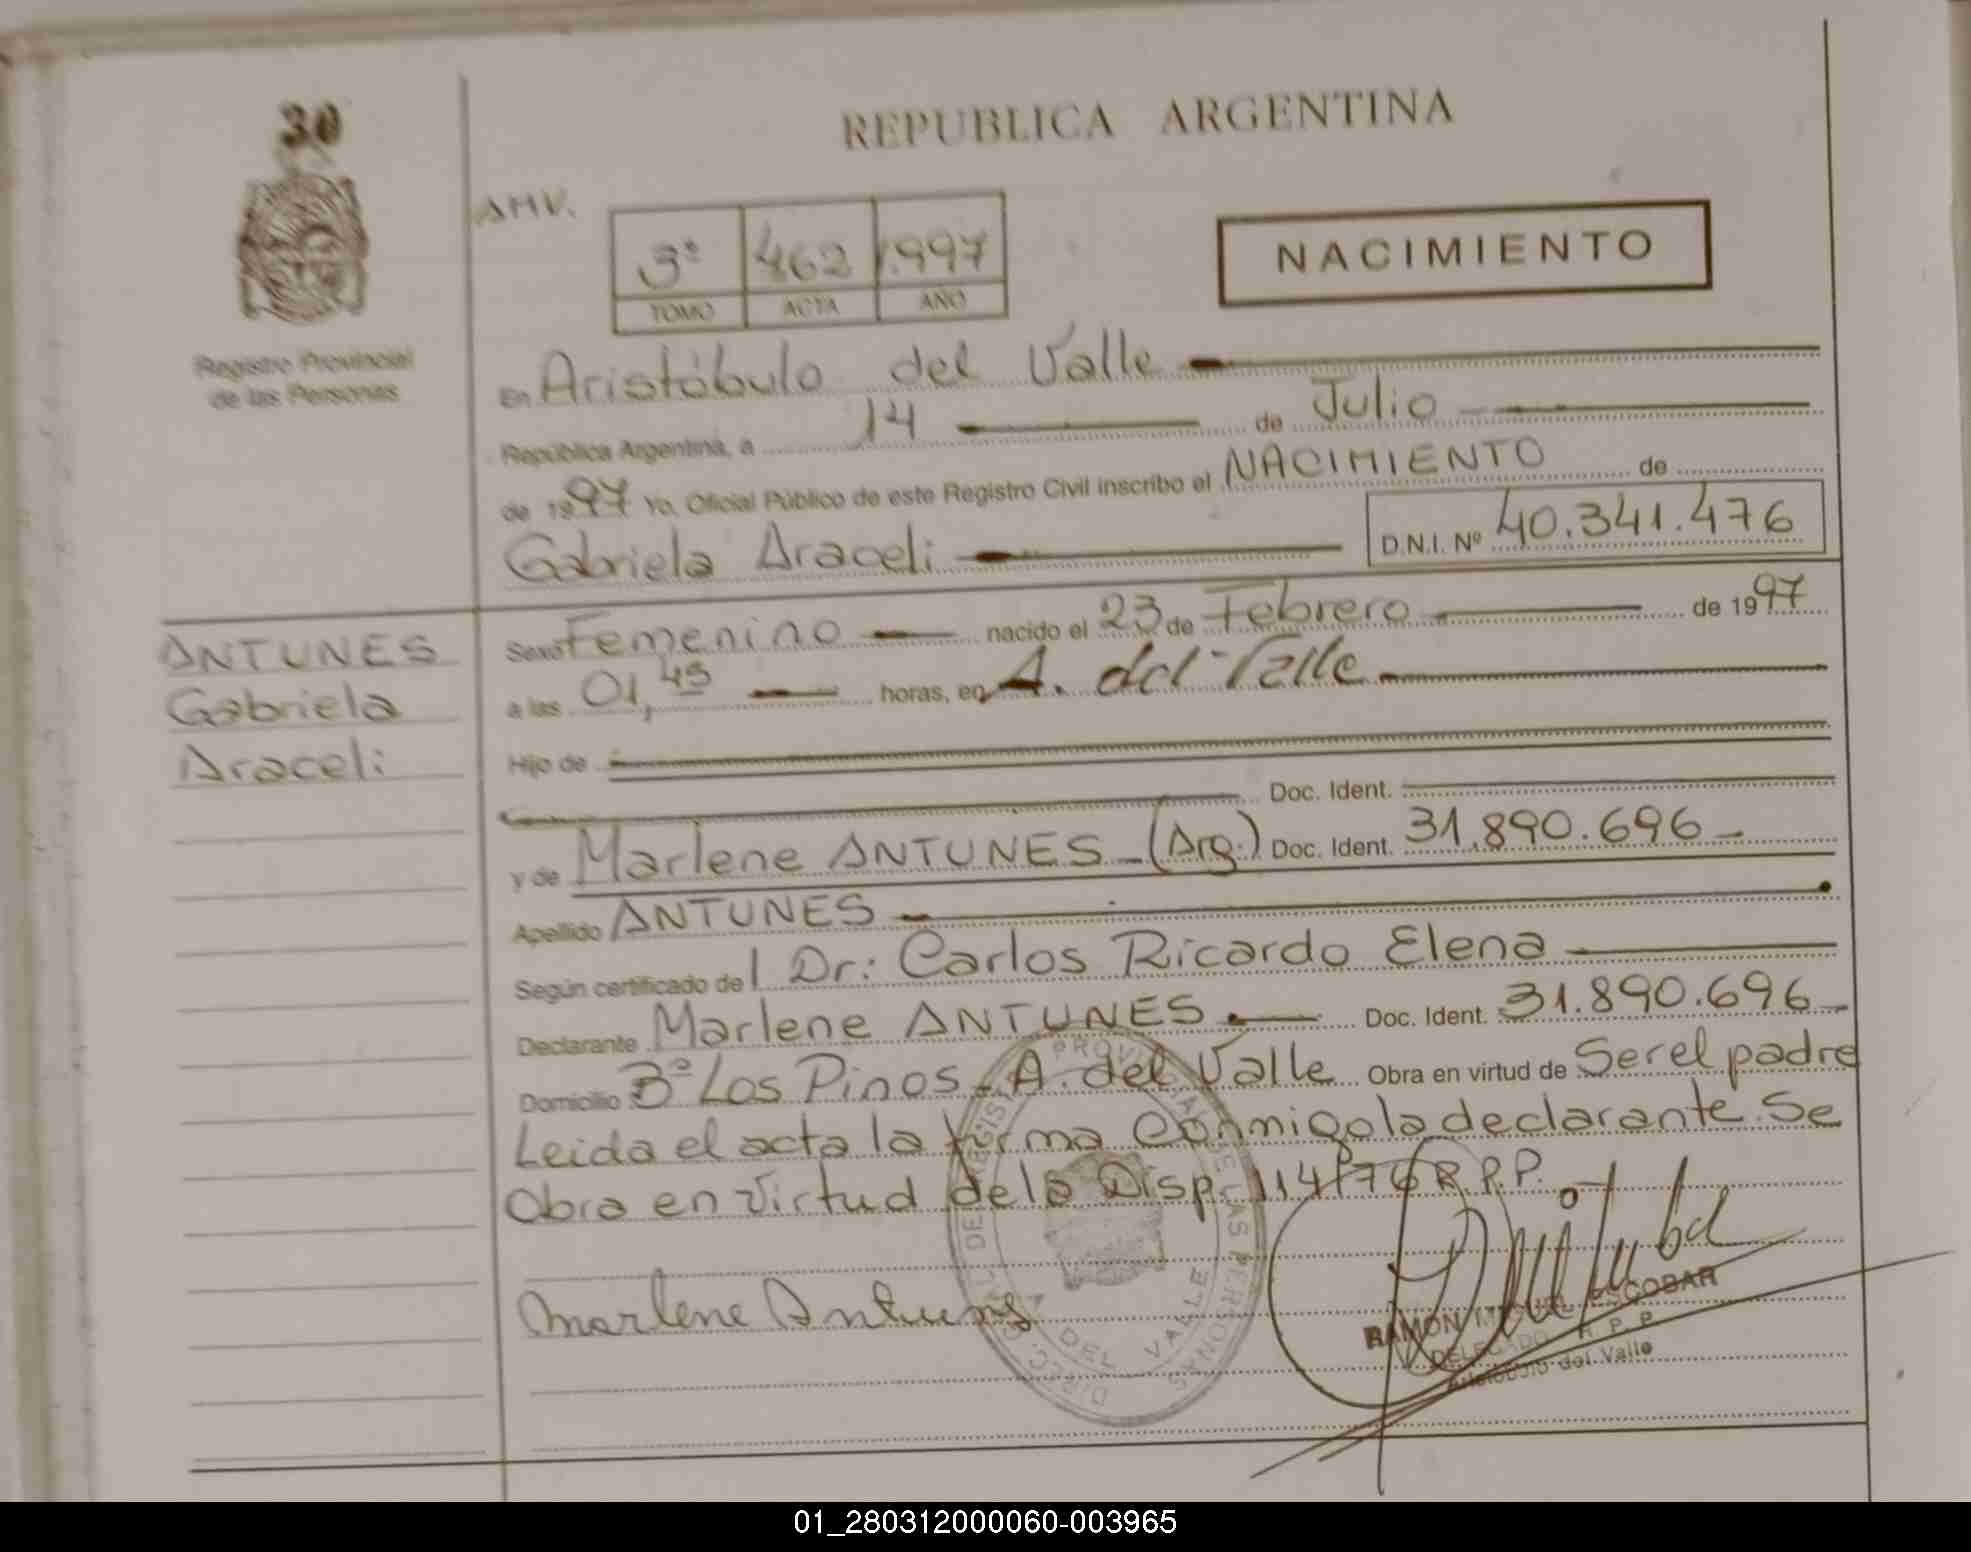 30
REPUBLICA ARGENTINA
AHV.
3º 462 1.997
TOMO ACTA AÑO
NACIMIENTO
Registro Provincial
de las Personas
En Aristóbulo del Valle
República Argentina, a 14 de Julio
de 1997 Yo, Oficial Público de este Registro Civil inscribo el NACIMIENTO de
Gabriela Araceli D.N.I. Nº 40.341.476
ANTUNES
Gabriela
Araceli
Sexo Femenino nacido el 23 de Febrero de 1997
a las 01,45 horas, en A. del Valle
Hijo de
Doc. Ident.
y de Marlene ANTUNES - (Arg.) Doc. Ident. 31.890.696 -
Apellido ANTUNES
Según certificado del Dr: Carlos Ricardo Elena
Declarante Marlene ANTUNES Doc. Ident. 31.890.696 -
Domicilio Bº Los Pinos - A. del Valle Obra en virtud de Ser el padre
Leida el acta la firma Conmigo la declarante. Se
Obra en virtud de la Disp. 114/76 R.P.P.
Marlene Antunes
RAMON MIGUEL ESCOBAR
DELEGADO R P P
Aristobulo del Valle
DEL VALLE
01_280312000060-003965